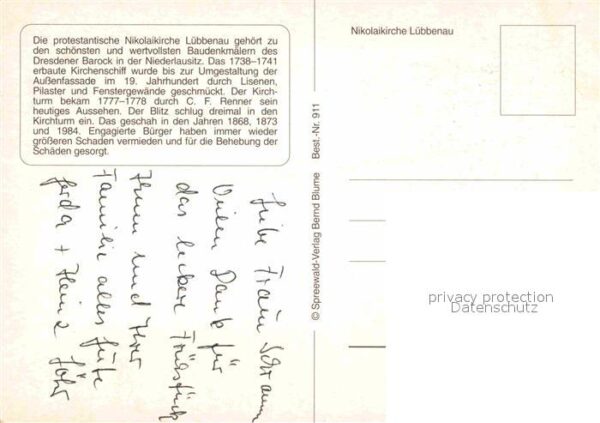 Die protestantische Nikolaikirche Lübbenau gehört zu
den schönsten und wertvollsten Baudenkmälern des
Dresdener Barock in der Niederlausitz. Das 1738–1741
erbaute Kirchenschiff wurde bis zur Umgestaltung der
Außenfassade im 19. Jahrhundert durch Lisenen,
Pilaster und Fenstergewände geschmückt. Der Kirch-
turm bekam 1777–1778 durch C. F. Renner sein
heutiges Aussehen. Der Blitz schlug dreimal in den
Kirchturm ein. Das geschah in den Jahren 1868, 1873
und 1984. Engagierte Bürger haben immer wieder
größeren Schaden vermieden und für die Behebung der
Schäden gesorgt.
Liebe Frau
Vielen Dank für
das leckere Frühstück
Ihnen und Ihrer
Familie alles Gute
Gerda + Heinz
© Spreewald-Verlag Bernd Blume Best.-Nr. 911
Nikolaikirche Lübbenau
privacy protection
Datenschutz